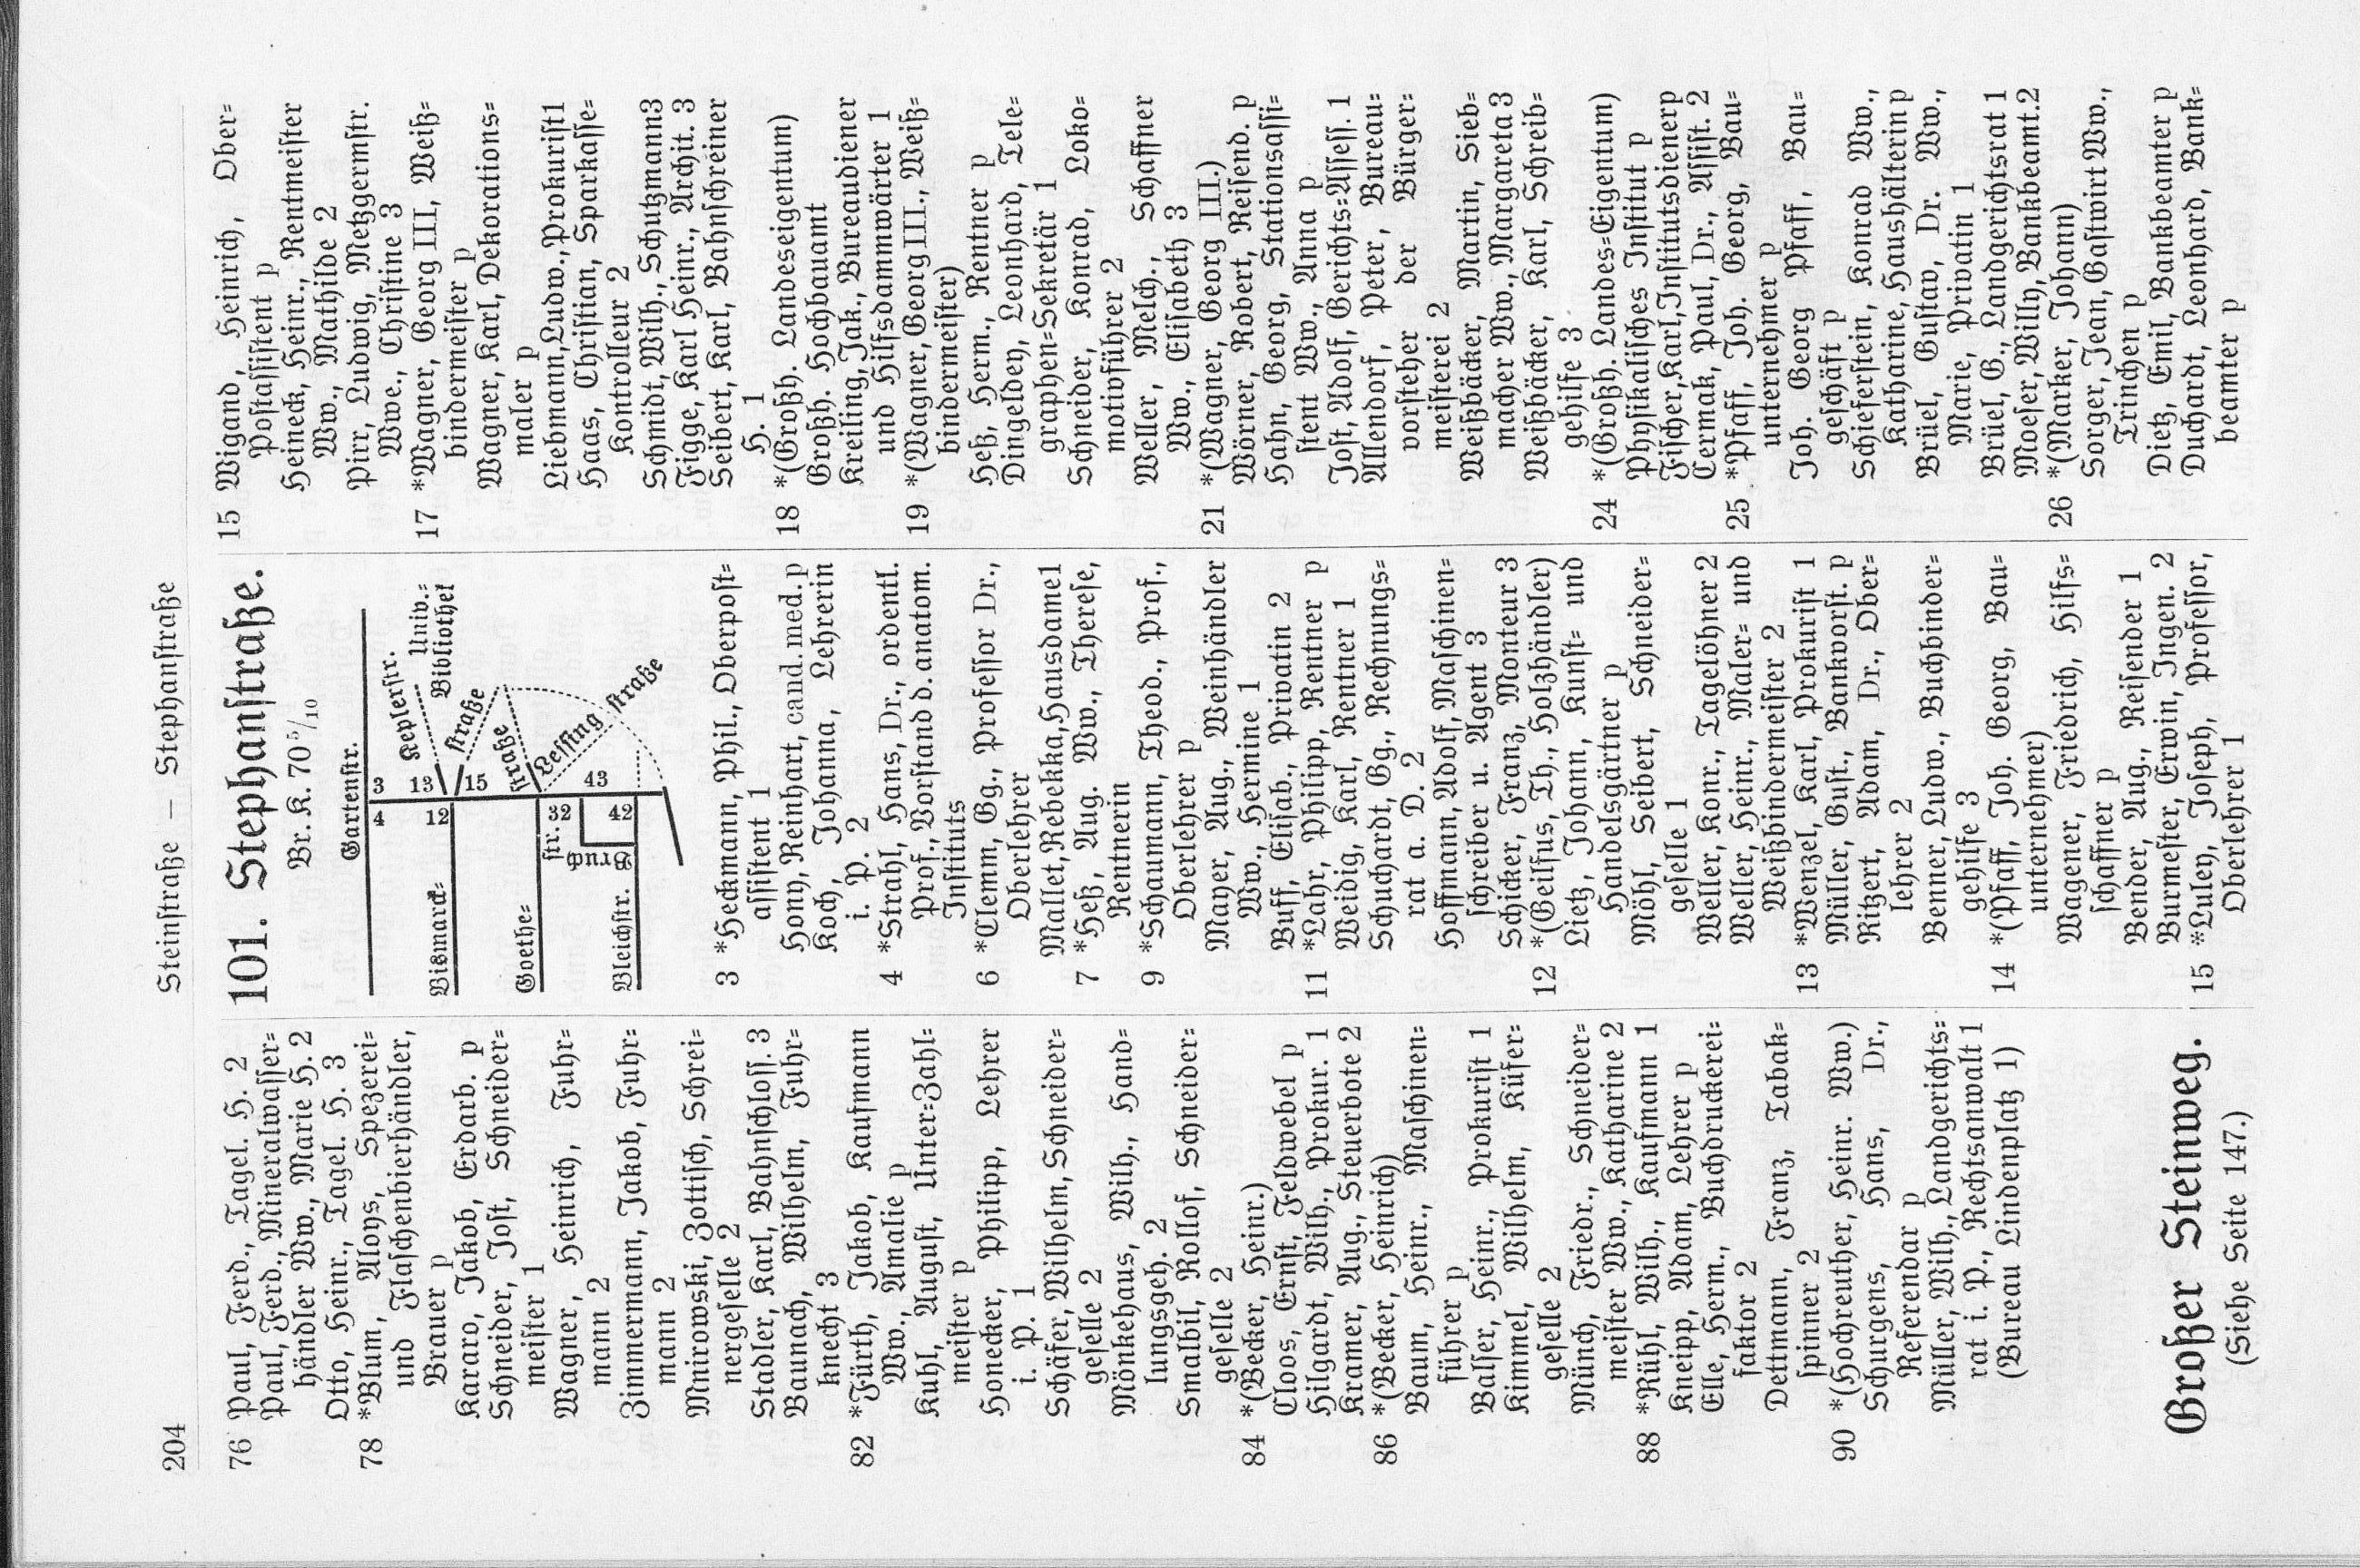 204
Steinstraße — Stephanstraße
76 Paul, Ferd., Tagel. H. 2
Paul, Ferd., Mineralwasser=
händler Ww., Marie H. 2
Otto, Heinr., Tagel. H. 3
78 *Blum, Aloys, Spezerei=
und Flaschenbierhändler,
Brauer p
Kararo, Jakob, Erdarb. p
Schneider, Jost, Schneider=
meister 1
Wagner, Heinrich, Fuhr=
mann 2
Zimmermann, Jakob, Fuhr=
mann 2
Mnirowski, Zottisch, Schrei=
nergeselle 2
Stadler, Karl, Bahnschloss. 3
Baunach, Wilhelm, Fuhr=
knecht 3
82 *Fürth, Jakob, Kaufmann
Ww., Amalie p
Kuhl, August, Unter=Zahl=
meister p
Honecker, Philipp, Lehrer
i. P. 1
Schäfer, Wilhelm, Schneider=
geselle 2
Mönkehaus, Wilh., Hand=
lungsgeh. 2
Smalbil, Rollof, Schneider=
geselle 2
84 *(Becker, Heinr.)
Cloos, Ernst, Feldwebel p
Hilgardt, Wilh., Prokur. 1
Kramer, Aug., Steuerbote 2
86 *(Becker, Heinrich)
Baum, Heinr., Maschinen=
führer p
Balser, Heinr., Prokurist 1
Kimmel, Wilhelm, Küfer=
geselle 2
Münch, Friedr., Schneider=
meister Ww., Katharine 2
88 *Rühl, Wilh., Kaufmann 1
Kneipp, Adam, Lehrer p
Elle, Herm., Buchdruckerei=
faktor 2
Dettmann, Franz, Tabak=
spinner 2
90 *(Hochreuther, Heinr. Ww.)
Schurgens, Hans, Dr.,
Referendar p
Müller, Wilh., Landgerichts=
rat i. P., Rechtsanwalt 1
(Bureau Lindenplatz 1)
Großer Steinweg.
(Siehe Seite 147.)
101. Stephanstraße.
Br. K. 70 5/10
Gartenstr.
3
4
Keplerstr.
Univ.=
Bibliothek
13
12
Bismarck=
15
straße
straße
Goethe=
str.
32
Lessing straße
43
Bruch
42
Bleichstr.
3 *Heckmann, Phil., Oberpost=
assistent 1
Hony, Reinhart, cand. med. p
Koch, Johanna, Lehrerin
i. P. 2
4 *Strahl, Hans, Dr., ordentl.
Prof., Vorstand d. anatom.
Instituts
6 *Clemm, Gg., Professor Dr.,
Oberlehrer
Mallet, Rebekka, Hausdame 1
7 *Heß, Aug. Ww., Therese,
Rentnerin
9 *Schaumann, Theod., Prof.,
Oberlehrer p
Mayer, Aug., Weinhändler
Ww., Hermine 1
Buff, Elisab., Privatin 2
11 *Lahr, Philipp, Rentner p
Weidig, Karl, Rentner 1
Schuchardt, Gg., Rechnungs=
rat a. D. 2
Hoffmann, Adolf, Maschinen=
schreiber u. Agent 3
Schicker, Franz, Monteur 3
12 *(Geilfus, Th., Holzhändler)
Lietz, Johann, Kunst= und
Handelsgärtner p
Möhl, Seibert, Schneider=
geselle 1
Weller, Konr., Tagelöhner 2
Weller, Heinr., Maler= und
Weißbindermeister 2
13 *Wenzel, Karl, Prokurist 1
Müller, Gust., Bankvorst. p
Ritzert, Adam, Dr., Ober=
lehrer 2
Benner, Ludw., Buchbinder=
gehilfe 3
14 *(Pfaff, Joh. Georg, Bau=
unternehmer)
Wagener, Friedrich, Hilfs=
schaffner p
Bender, Aug., Reisender 1
Burmester, Erwin, Ingen. 2
15 *Luley, Joseph, Professor,
Oberlehrer 1
15 Wigand, Heinrich, Ober=
Postassistent p
Heineck, Heinr., Rentmeister
Ww., Mathilde 2
Pirr, Ludwig, Metzgermstr.
Wwe., Christine 3
17 *Wagner, Georg III, Weiß=
bindermeister p
Wagner, Karl, Dekorations=
maler p
Liebmann, Ludw., Prokurist 1
Haas, Christian, Sparkasse=
Kontrolleur 2
Schmidt, Wilh., Schutzmann 3
Figge, Karl Heinr., Archit. 3
Seibert, Karl, Bahnschreiner
H. 1
18 *(Großh. Landeseigentum)
Großh. Hochbauamt
Kreiling, Jak., Bureaudiener
und Hilfsdammwärter 1
19 *(Wagner, Georg III., Weiß=
bindermeister)
Heß, Herm., Rentner p
Dingeldey, Leonhard, Tele=
graphen=Sekretär 1
Schneider, Konrad, Loko=
motivführer 2
Weller, Melch., Schaffner
Ww., Elisabeth 3
21 *(Wagner, Georg III.)
Wörner, Robert, Reisend. p
Hahn, Georg, Stationsassi=
stent Ww., Anna p
Jost, Adolf, Gerichts=Assess. 1
Allendorf, Peter, Bureau=
vorsteher der Bürger=
meisterei 2
Weißbäcker, Martin, Sieb=
macher Ww., Margareta 3
Weißbäcker, Karl, Schreib=
gehilfe 3
24 *(Großh. Landes=Eigentum)
Physikalisches Institut p
Fischer, Karl, Institutsdiener p
Cermak, Paul, Dr., Assist. 2
25 *Pfaff, Joh. Georg, Bau=
unternehmer p
Joh. Georg Pfaff, Bau=
geschäft p
Schieferstein, Konrad Ww.,
Katharine, Haushälterin p
Brüel, Gustav, Dr. Ww.,
Marie, Privatin 1
Brüel, G., Landgerichtsrat 1
Moeser, Willy, Bankbeamt. 2
26 *(Marker, Johann)
Sorger, Jean, Gastwirt Ww.,
Trinchen p
Dietz, Emil, Bankbeamter p
Duchardt, Leonhard, Bank=
beamter p